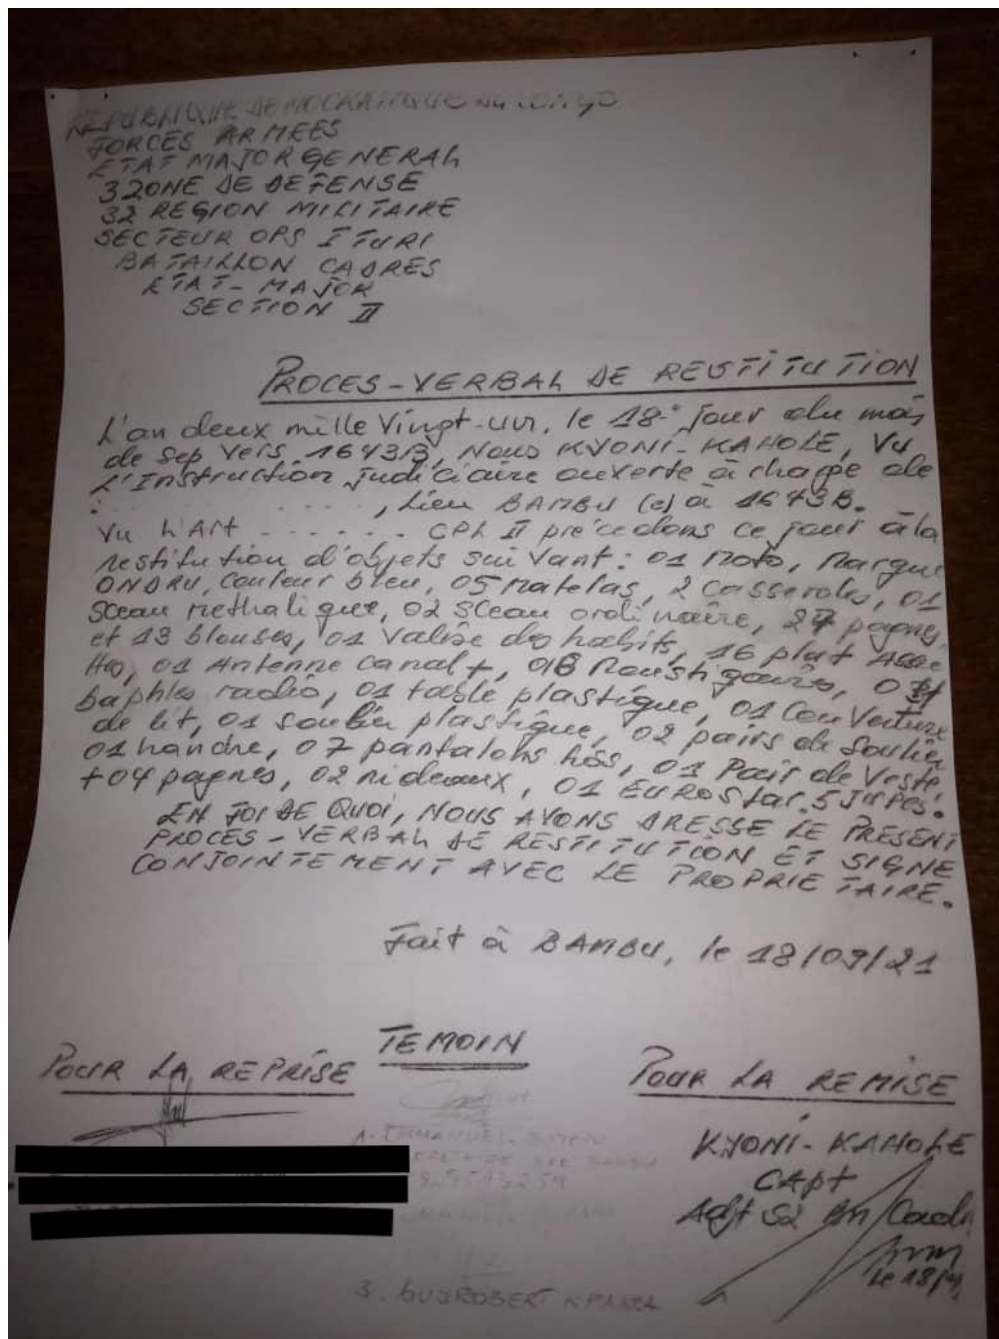 REPUBLIQUE DEMOCRATIQUE du CONGO
FORCES ARMEES
ETAT MAJOR GENERAL
3 ZONE DE DEFENSE
32 REGION MILITAIRE
SECTEUR OPS ITURI
BATAILLON CADRES
ETAT-MAJOR
SECTION II
PROCES-VERBAL DE RESTITUTION
L'an deux mille Vingt-un, le 18e jour du mois
de Sep Vers 1643B, Nous KYONI-KAHOLE, Vu
L'Instruction judiciaire ouverte à charge de
: . . . . . . , Lieu BAMBU (e) à 1643B.
Vu L'Art . . . . . . CPL II précedons ce jour à la
restitution d'objets suivant : 01 Moto, Marque
ONDRU, Couleur bleu, 05 Matelas, 2 Casseroles, 01
Sceau methalique, 02 Sceau ordinaire, 27 pagnes
et 13 blouses, 01 Valise des habits, 16 plat
01 Antenne Canal+, 0
baphles radio, 01 table plastique, 01 Couverture
de lit, 01 soulier plastique, 02 pairs de Soulier
01 handre, 07 pantalons 01 Pair de Veste
+04 pagnes, 02 rideaux, 01 EUROStar. 5 Jupes.
EN FOI DE QUOI, NOUS AVONS DRESSE LE PRESENT
PROCES-VERBAL DE RESTITUTION ET SIGNE
CONJOINTEMENT AVEC LE PROPRIETAIRE.
Fait à BAMBU, le 18/09/21
TEMOIN
POUR LA REPRISE
POUR LA REMISE
1. EMMANUEL
KYONI-KAHOLE
CAPt
Adjt S2 Bn/Cadr
le 18/
3. KPADA